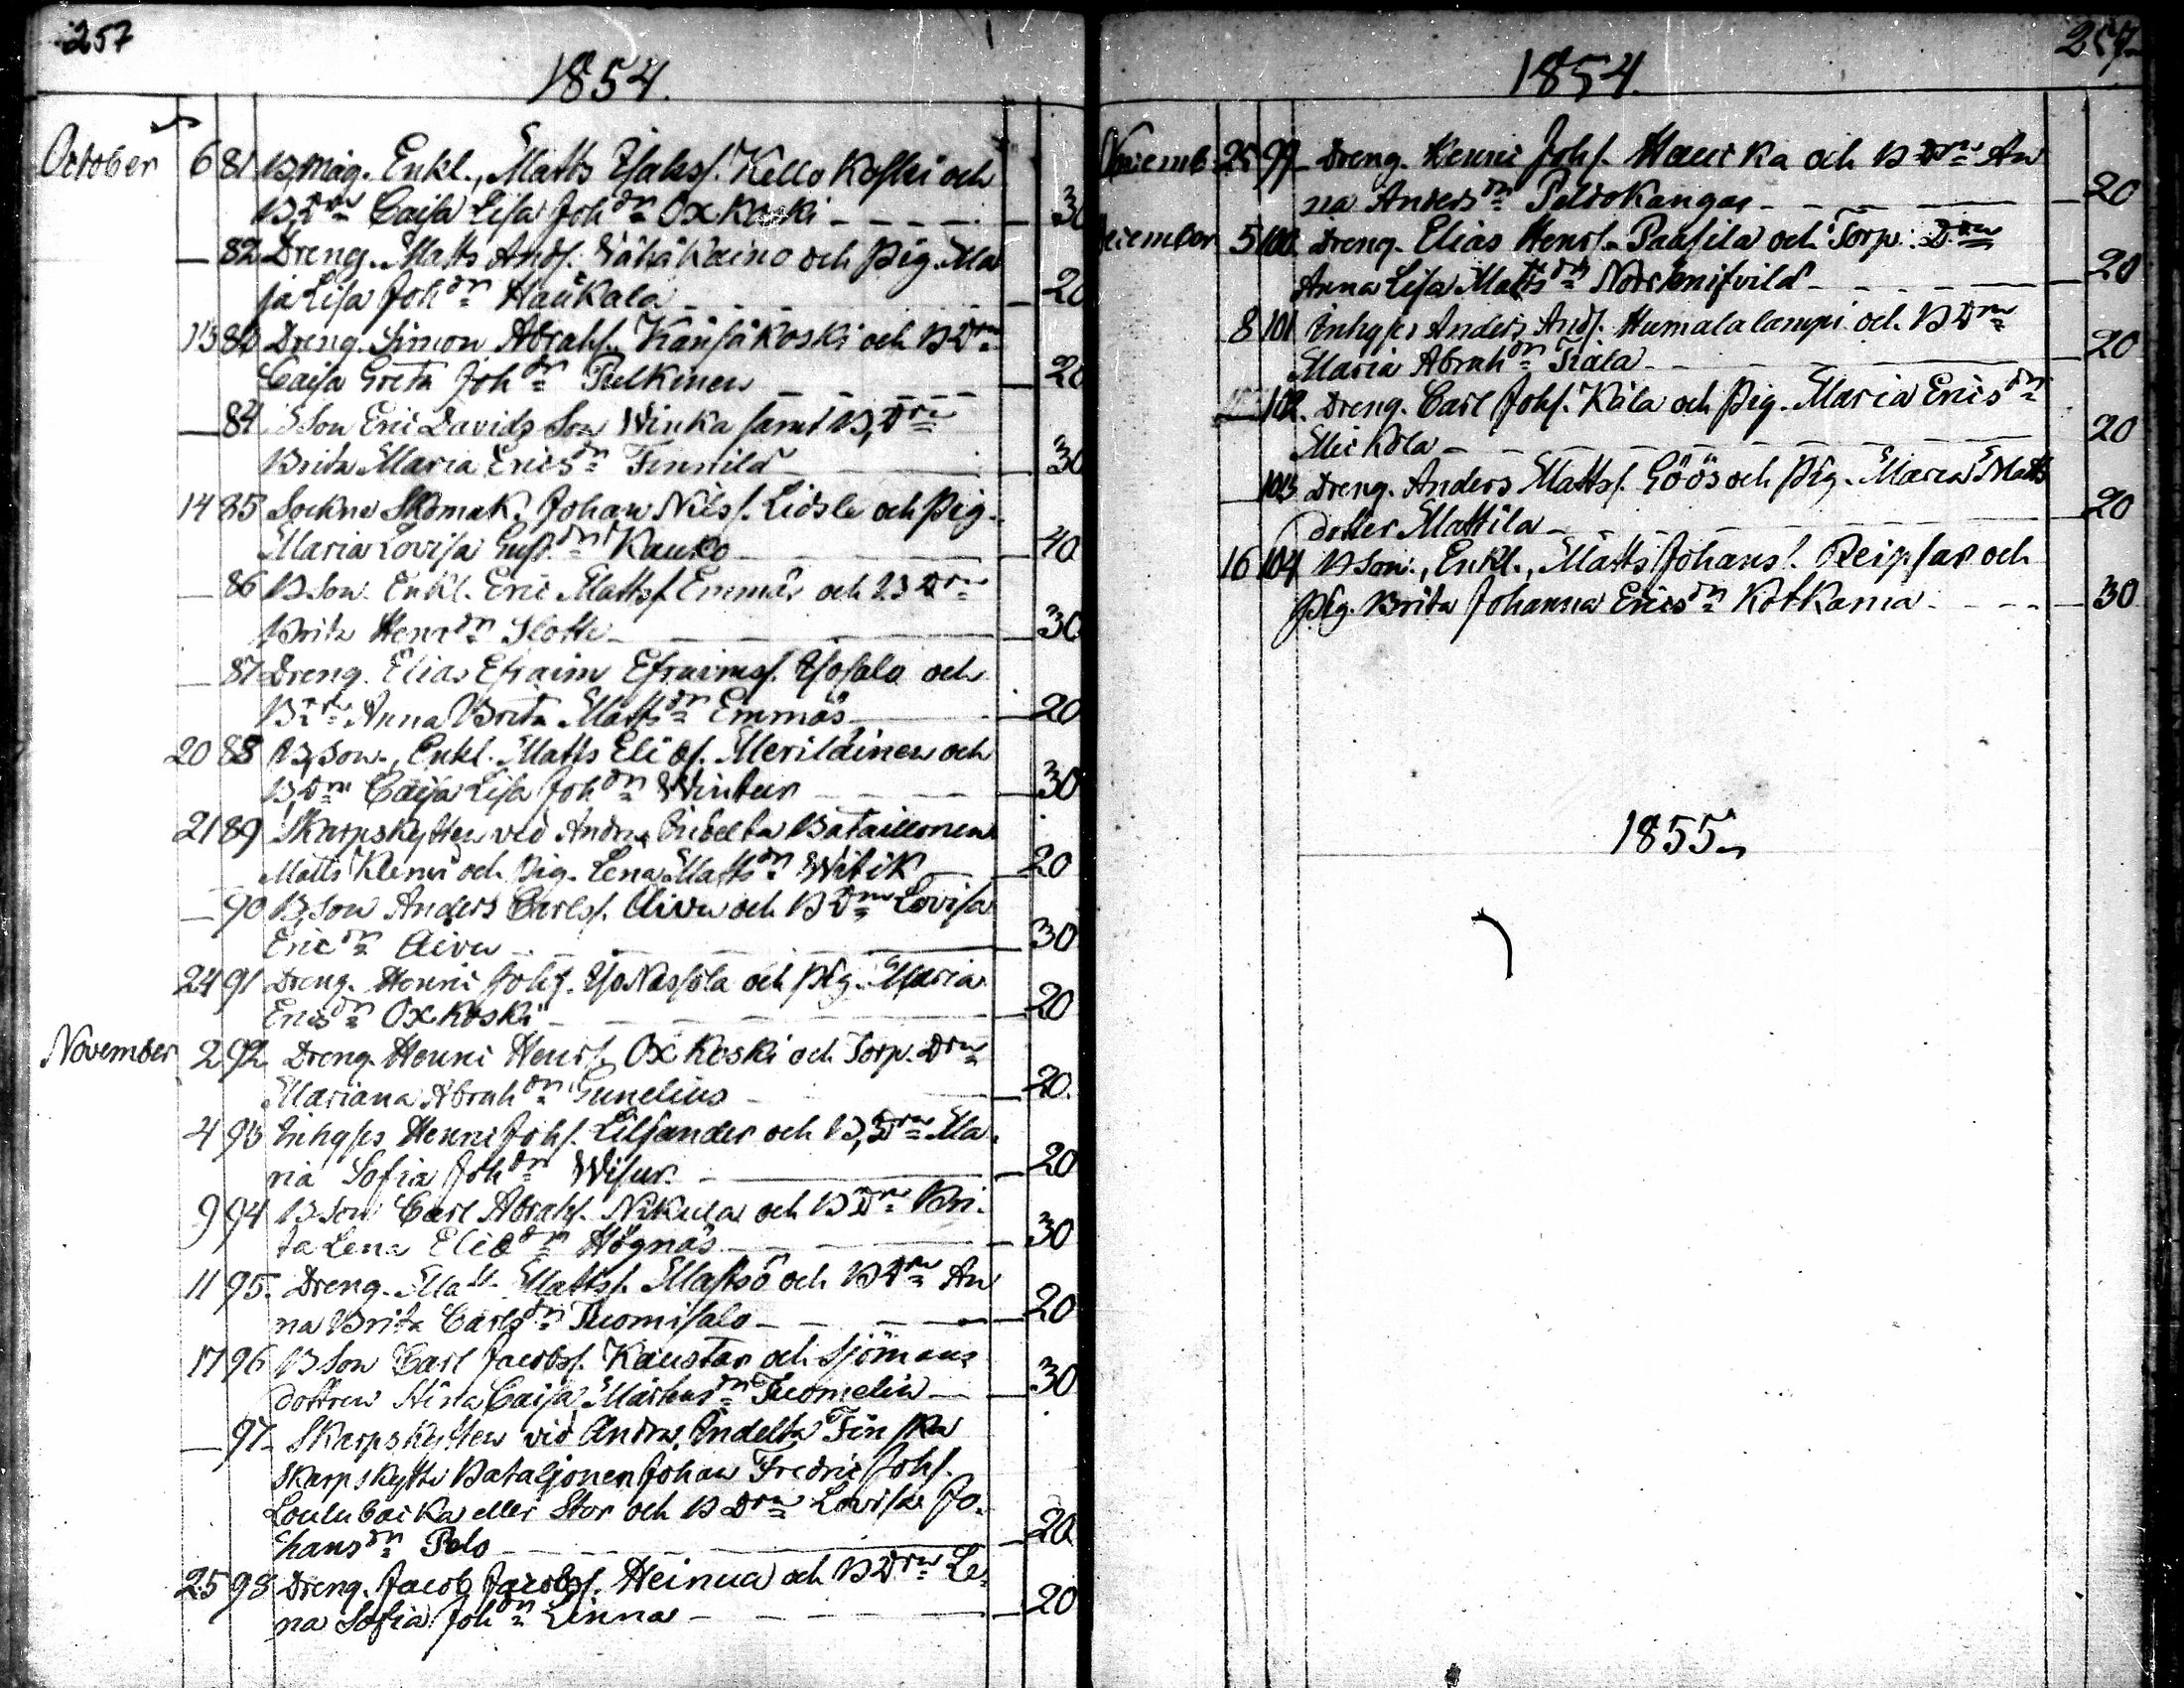 257
1854.
October 6 81 B,måg. Enkl., Matts Isaksf. Kellokoski och
B,Drn Caisa Lisa Johdr Oxkoski 30
— 82 Dreng. Matts Andf. Vähäkaino och Pig. Ma
ja Lisa Johdr Haukala 20
13 83 Dreng. Simon Abrahf. Känsäkoski och B Drn
Caisa Greta Johdr Pulkinen 20
— 84 BSon Eric Davids Son Winka samt B,Drn
Brita Maria Ericsdr Finnilä 30
14 85 Sockne Skomak. Johan Nilsf. Lidsle och Pig.
Maria Lovisa Gust.dr Kauko 40
— 86 BSon. Enkl. Eric Mattsf. Emmäs och B Drn
Brita Henrdr Slotte 30
— 87 Dreng. Elias Efraim Efraimsf. Isosalo och
B Drn Anna Brita Mattsdr Emmäs 20
20 88 B,Son., Enkl. Matts Eliæf. Meriläinen och
B,Drn Caisa Lisa Johdr Winter 30
21 89 Skarpskytten vid Andra Indelta Bataillonen
Matts Klemi och Pig. Lena Mattsdr Witik 20
— 90 B,Son Anders Carlsf. Aivu och B Drn Lovisa
Ericdr Aivu 30
24 91 Dreng. Henric Johf. Isokassila och Pig. Maria
Ericsdr Oxkoski 20
November 2 92 Dreng. Henric Henrf. Oxkoski och Torp. Drn
Mariana Abrahdr Gunelius 20.
4 93 Inhyses Henric Johf. Liljander och B,Drn Ma-
ria Sofia Johdr Wisur 20
9 94 B Son Carl Abrahf. Nikula och B Drn Bri-
ta Lena Eliædr Högnäs 30
11 95. Dreng. Matt. Mattsf. Mastsö och B Drn An
na Brita Carlsdr Tuomisalo 20
17 96 B Son Carl Jacobsf. Kaustar och Sjömans
dottren Stina Caisa Martensdr Tuomelin 30
— 97 Skarpskytten vid Andra Indelta Finska
Skarpskytte Bataljonen Johan Fredric Johf.
Loulubacka eller Stor och B Drn Lovisa Jo-
hansdr Polo 20
25 98 Dreng. Jacob Jacobsf. Heinua och B Drn Le-
na Sofia Johdr Linna 20
257
1854.
Novemb. 25 99 Dreng. Henric Johf. Haucka och B Drn An
na Andersdr Peldokangas 20
December 5 100 Dreng. Elias Henrf. Paasila och Torp. Drn
Anna Lisa Mattsdr 20
8 101 Inhyses Anders Andf. Humalalampi och B Drn
Maria Abrahdr Tiala 20
— 102. Dreng. Carl Johf. Käla och Pig. Maria Ericsdr
Mickola 20
— 103 Dreng. Anders Mattsf. Göös och Pig. Maria Matts
dotter Mattila 20
16 104 B Son., Enkl., Matts Johansf. Reipsar och
Pig. Brita Johanna Ericsdr Kotkama 30
1855